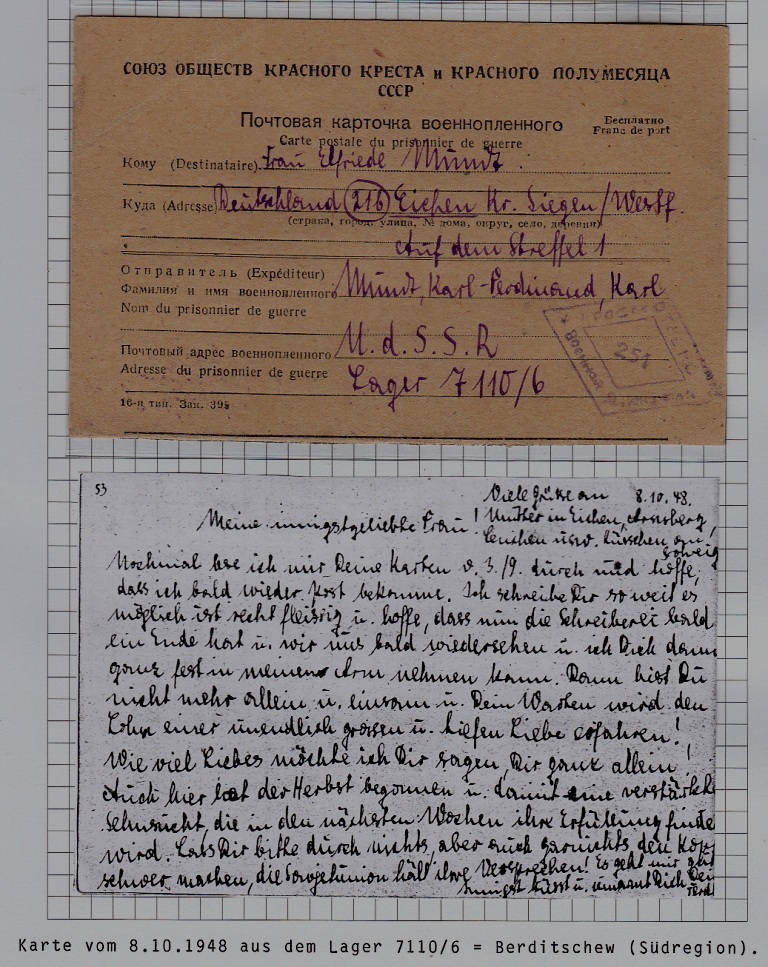 СОЮЗ ОБЩЕСТВ КРАСНОГО КРЕСТА и КРАСНОГО ПОЛУМЕСЯЦА
СССР
Почтовая карточка военнопленного
Бесплатно
Franc de port
Carte postale du prisonnier de guerre
Кому (Destinataire) Frau Elfriede Mundt.
Куда (Adresse) Deutschland (21b) Eichen Kr. Siegen/Westf.
(страна, город, улица, № дома, округ, село, деревня)
Auf dem Streffel 1
Отправитель (Expéditeur)
Фамилия и имя военнопленного Mundt, Karl-Ferdinand, Karl
Nom du prisonnier de guerre
Почтовый адрес военнопленного U.d.S.S.R
Adresse du prisonnier de guerre Lager 7110/6
16-я тип. Зак. 395
251
53
Viele Grüsse an 8.10.48.
Meine innigstgeliebte Frau! Mutter in Eichen, Arnsberg,
Lenchen usw. Küsschen an
Nochmal lese ich mir Deine Karten v. 3./9. durch und hoffe,
dass ich bald wieder Post bekomme. Ich schreibe Dir so weit es
möglich ist recht fleissig u. hoffe, dass nun die Schreiberei bald
ein Ende hat u. wir uns bald wiedersehen u. ich Dich dann
ganz fest in meinen Arm nehmen kann. Dann bist Du
nicht mehr allein u. einsam u. Dein Warten wird den
Lohn einer unendlich grossen u. tiefen Liebe erfahren!
Wie viel Liebes möchte ich Dir sagen, Dir ganz allein!
Auch hier hat der Herbst begonnen u. damit eine verstärkte
Sehnsucht, die in den nächsten Wochen ihre Erfüllung finde
wird. Lass Dir bitte durch nichts, aber auch garnichts, den Kop
schwer machen, die Sowjetunion hält ihre Versprechen! Es geht mir gut
Innigst küsst u. umarmt Dich Dein
Ferd
Karte vom 8.10.1948 aus dem Lager 7110/6 = Berditschew (Südregion).